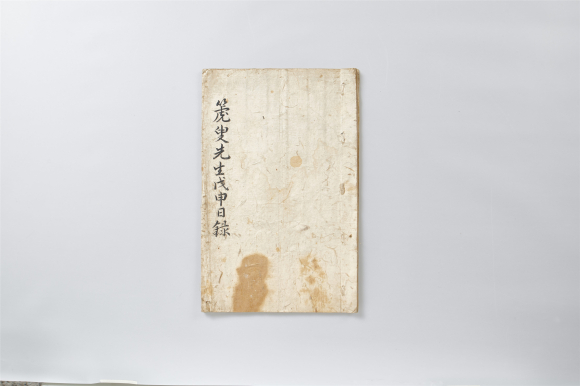 篪叟先生戊申日録